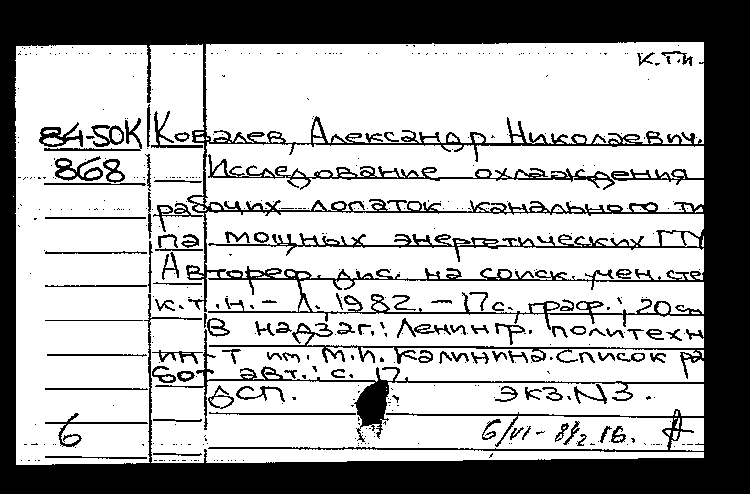 К.Т.Н.
84-50К Ковалев, Александр Николаевич.
868 Исследование охлаждения
рабочих лопаток канального ти
па мощных энергетических ГТУ
Автореф. дис. на соиск. учен. сте
к.т.н. - Л., 1982. - 17 с., граф.; 20 см
В надзаг.: Ленингр. политехн
ин-т им. М.И. Калинина. Список ра
бот авт.: с. 17.
ДСП. экз. N3.
6 6/VI-84г.